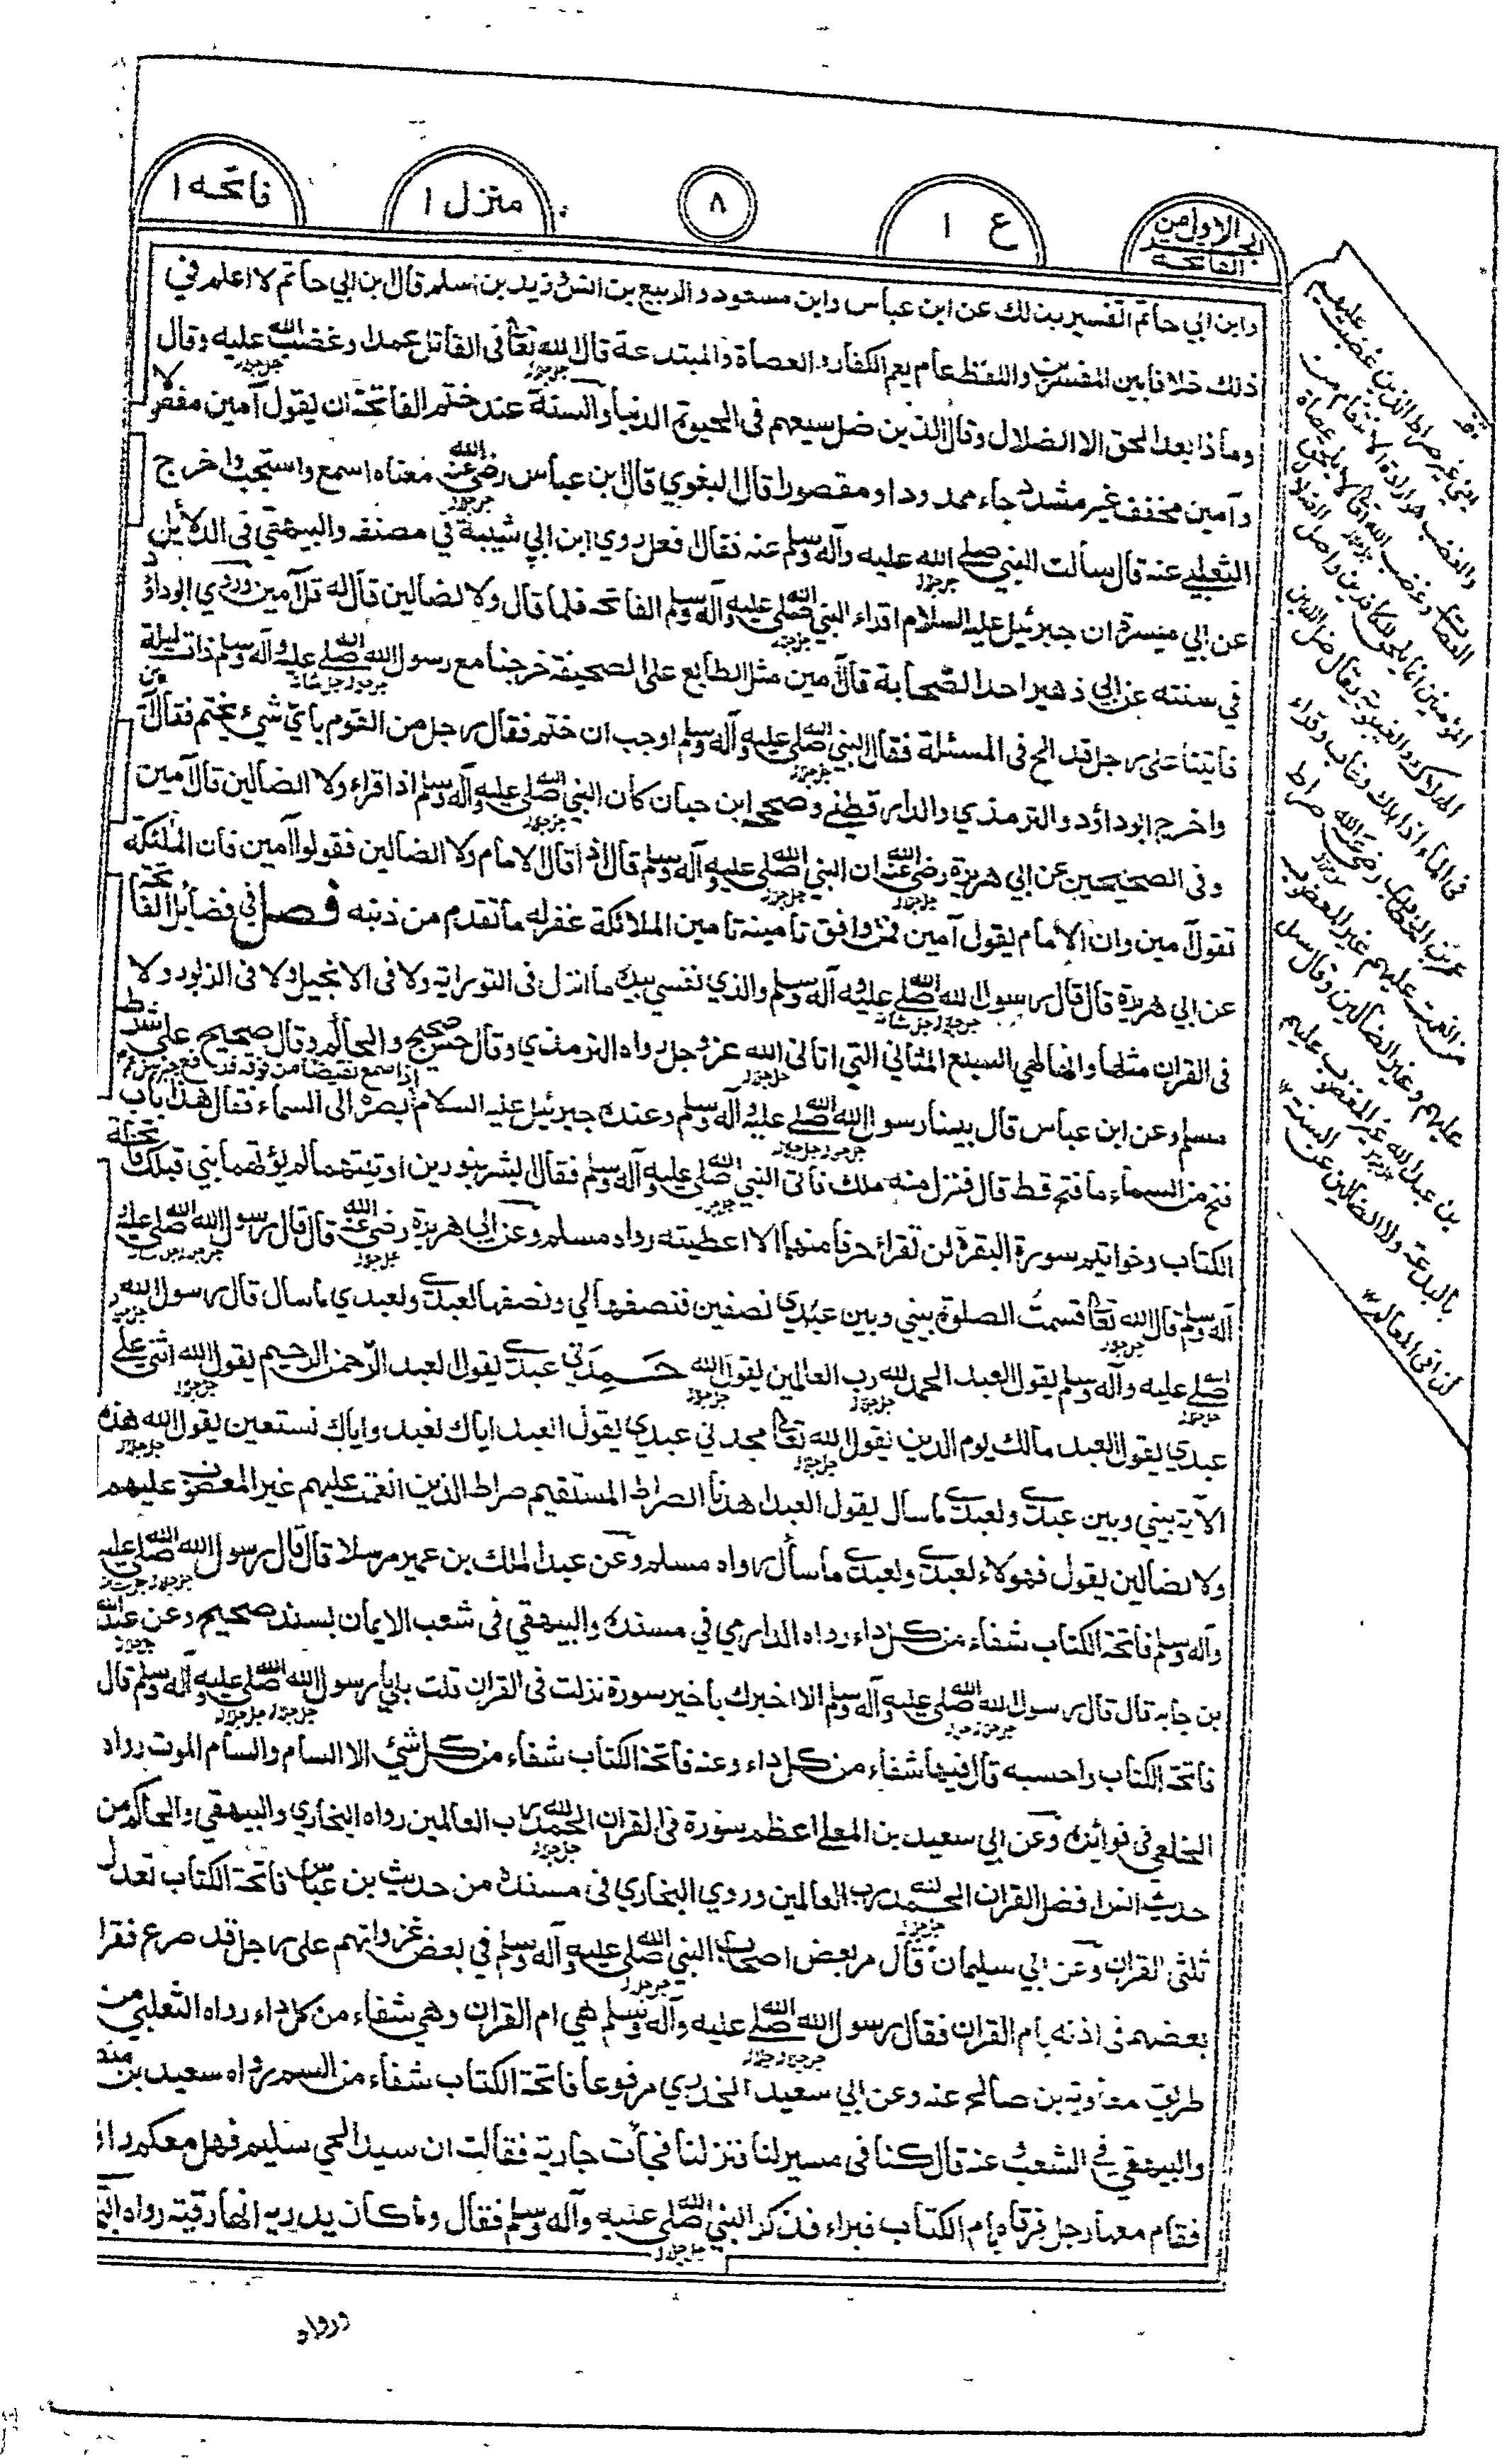 الجزء الاول من الفاتحة
ع ١
٨
منزل ١
فاتحه ١
وابن ابي حاتم التفسير بذلك عن ابن عباس وابن مسعود والربيع بن انس وزيد بن اسلم قال ابن ابي حاتم لا اعلم في
ذلك خلافا بين المفسرين واللفظ عام يعم الكفار والعصاة والمبتدعة قال الله تعالى فى القاتل عمدا وغضب الله عليه وقال
وماذا بعد الحق الا الضلال وقال الذين ضل سيعهم فى الحيوة الدنيا والسنة عند ختم الفاتحة ان يقول آمين مفصولا
وآمين مخفف غير مشدد جاء ممدودا ومقصورا قال البغوي قال ابن عباس رضي الله عنه معناه اسمع واستجب واخرج
الثعلبي عنه قال سألت النبي صلى الله عليه وآله وسلم عنه فقال افعل روي ابن ابي شيبة في مصنفه والبيهقي فى الدلائل
عن ابي ميسرة ان جبرئيل عليه السلام اقراء النبي صلى الله عليه وآله وسلم الفاتحة فلما قال ولا لضالين قال له قل آمين وروي ابوداؤد
في سننه عن ابي زهير احد الصحابة قال آمين مثل الطابع على الصحيفة خرجنا مع رسول الله صلى الله عليه وآله وسلم ذات ليلة
فاتينا على رجل قد الح فى المسئلة فقال النبي صلى الله عليه وآله وسلم اوجب ان ختم فقال رجل من القوم باي شيء يختم فقال بآمين
واخرج ابوداؤد والترمذي والدارقطني وصححه ابن حبان كان النبي صلى الله عليه وآله وسلم اذا قراء ولا الضالين قال آمين
وفى الصحيحين عن ابي هريرة رضي الله عنه ان النبي صلى الله عليه وآله وسلم قال اذا قال الامام ولا الضالين فقولوا آمين فان الملئكة
تقول آمين وان الامام يقول آمين فمن وافق تامينه تامين الملائكة غفر له ما تقدم من ذنبه فصل في فضائل الفاتحة
عن ابي هريرة قال قال رسول الله صلى الله عليه وآله وسلم والذي نفسي بيده ما انزل فى التوراية ولا فى الانجيل ولا فى الزبور ولا
فى القران مثلها وانها لهي السبع المثاني التي اتانى الله عز وجل رواه الترمذي وقال حسن صحيح والحاكم وقال صحيح على شرط
مسلم وعن ابن عباس قال بينا رسول الله صلى الله عليه وآله وسلم وعنده جبرئيل عليه السلام اذا سمع نقيضا من فوقه فرفع جبرئيل بصره الى السماء فقال هذا باب
فتح من السماء ما فتح قط قال فنزل منه ملك فاتى النبي صلى الله عليه وآله وسلم فقال ابشر بنورين اوتيتهما لم يؤتهما نبي قبلك فاتحة
الكتاب وخواتيم سورة البقرة لن تقرأ حرفا منهما الا اعطيته رواه مسلم وعن ابي هريرة رضي الله عنه قال قال رسول الله صلى الله عليه و
آله وسلم قال الله تعالى قسمت الصلوة بيني وبين عبدي نصفين فنصفها لي ونصفها لعبدي ولعبدي ما سال قال رسول الله
صلى الله عليه وآله وسلم يقول العبد الحمد لله رب العالمين يقول الله حمدني عبدي يقول العبد الرحمن الرحيم يقول الله اثنى علي
عبدي يقول العبد مالك يوم الدين يقول الله تعالى مجدني عبدي يقول العبد اياك نعبد واياك نستعين يقول الله هذه
الآية بيني وبين عبدي ولعبدي ما سأل يقول العبد اهدنا الصراط المستقيم صراط الذين انعمت عليهم غير المغضوب عليهم
ولا لضالين يقول فهولاء لعبدي ولعبدي ما سأل رواه مسلم وعن عبد الملك بن عمير مرسلا قال قال رسول الله صلى الله عليه
وآله وسلم فاتحة الكتاب شفاء من كل داء رواه الدارمي في مسنده والبيهقي فى شعب الايمان بسند صحيح وعن عبد الله
بن جابر قال قال رسول الله صلى الله عليه وآله وسلم الا اخبرك باخير سورة نزلت فى القران قلت بلى يا رسول الله صلى الله عليه وآله وسلم قال
فاتحة الكتاب واحسبه قال فيها شفاء من كل داء وعنه فاتحة الكتاب شفاء من كل شئ الا السام والسام الموت رواه
الخلعي فى فوائده وعن ابي سعيد بن المعلى اعظم سورة فى القران الحمد لله رب العالمين رواه البخاري والبيهقي والحاكم من
حديث انس افضل القران الحمد لله رب العالمين وروي البخاري فى مسنده من حديث بن عباس فاتحة الكتاب تعدل
ثلثى القران وعن ابي سليمان قال مر بعض اصحاب النبي صلى الله عليه وآله وسلم في بعض غزواتهم على رجل قد صرع فقرا
بعضهم فى اذنه بام القران فقال رسول الله صلى الله عليه وآله وسلم هي ام القران وهي شفاء من كل داء رواه الثعلبي من
طريق معاوية بن صالح عنه وعن ابي سعيد الخدري مرفوعا فاتحة الكتاب شفاء من السم رواه سعيد بن منصور
والبيهقي في الشعب عنه قال كنا فى مسير لنا فنزلنا فجأت جارية فقالت ان سيد الحي سليم فهل معكم راق
فقام معها رجل فرقاه بام الكتاب فبراء فذكر النبي صلى الله عليه وآله وسلم فقال وما كان يدريه انها رقية رواه
ورواه
يعني غير صراط الذين غضبت عليهم
والغضب هو ارادة الانتقام من
العصاة وغضب الله تعالى لا يلحق عصاة
المؤمنين انما يلحق الكافرين واصل الضلال
الهلاك والغيبوبة يقال ضل اللبن
فى الماء اذا هلك وغاب وقراء
عمر بن الخطاب رضي الله عنه صراط
من انعمت عليهم غير المغضوب
عليهم وغير الضالين وقال سهل
بن عبد الله غير المغضوب عليهم
بالبدعة ولا الضالين عن السنة ١٢
كذا فى المعالم ١٢